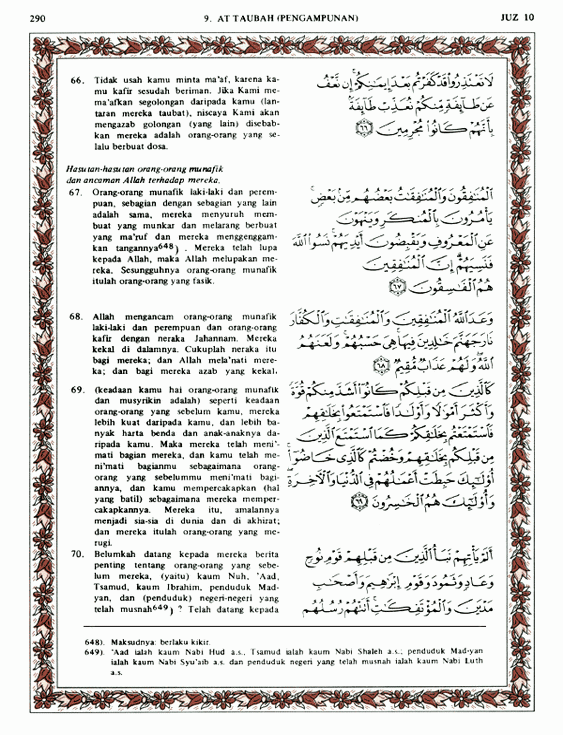 290
9. AT TAUBAH (PENGAMPUNAN)
JUZ 10
66. Tidak usah kamu minta ma'af, karena ka-
mu kafir sesudah beriman. Jika Kami me-
ma'afkan segolongan daripada kamu (lan-
taran mereka taubat), niscaya Kami akan
mengazab golongan (yang lain) disebab-
kan mereka adalah orang-orang yang se-
lalu berbuat dosa.
لَا تَعْتَذِرُوا۟ قَدْ كَفَرْتُم بَعْدَ إِيمَـٰنِكُمْ ۚ إِن نَّعْفُ
عَن طَآئِفَةٍ مِّنكُمْ نُعَذِّبْ طَآئِفَةًۢ
بِأَنَّهُمْ كَانُوا۟ مُجْرِمِينَ ٦٦
Hasutan-hasutan orang-orang munafik
dan ancaman Allah terhadap mereka.
67. Orang-orang munafik laki-laki dan perem-
puan, sebagian dengan sebagian yang lain
adalah sama, mereka menyuruh mem-
buat yang munkar dan melarang berbuat
yang ma'ruf dan mereka menggenggam-
kan tangannya648) . Mereka telah lupa
kepada Allah, maka Allah melupakan me-
reka. Sesungguhnya orang-orang munafik
itulah orang-orang yang fasik.
ٱلْمُنَـٰفِقُونَ وَٱلْمُنَـٰفِقَـٰتُ بَعْضُهُم مِّنۢ بَعْضٍ ۚ
يَأْمُرُونَ بِٱلْمُنكَرِ وَيَنْهَوْنَ
عَنِ ٱلْمَعْرُوفِ وَيَقْبِضُونَ أَيْدِيَهُمْ ۚ نَسُوا۟ ٱللَّهَ
فَنَسِيَهُمْ ۗ إِنَّ ٱلْمُنَـٰفِقِينَ
هُمُ ٱلْفَـٰسِقُونَ ٦٧
68. Allah mengancam orang-orang munafik
laki-laki dan perempuan dan orang-orang
kafir dengan neraka Jahannam. Mereka
kekal di dalamnya. Cukuplah neraka itu
bagi mereka; dan Allah mela'nati mere-
ka; dan bagi mereka azab yang kekal.
وَعَدَ ٱللَّهُ ٱلْمُنَـٰفِقِينَ وَٱلْمُنَـٰفِقَـٰتِ وَٱلْكُفَّارَ
نَارَ جَهَنَّمَ خَـٰلِدِينَ فِيهَا ۚ هِىَ حَسْبُهُمْ ۚ وَلَعَنَهُمُ
ٱللَّهُ ۖ وَلَهُمْ عَذَابٌ مُّقِيمٌ ٦٨
69. (keadaan kamu hai orang-orang munafik
dan musyrikin adalah) seperti keadaan
orang-orang yang sebelum kamu, mereka
lebih kuat daripada kamu, dan lebih ba-
nyak harta benda dan anak-anaknya da-
ripada kamu. Maka mereka telah meni'-
mati bagian mereka, dan kamu telah me-
ni'mati bagianmu sebagaimana orang-
orang yang sebelummu meni'mati bagi-
annya, dan kamu mempercakapkan (hal
yang batil) sebagaimana mereka memper-
cakapkannya. Mereka itu, amalannya
menjadi sia-sia di dunia dan di akhirat;
dan mereka itulah orang-orang yang me-
rugi.
كَٱلَّذِينَ مِن قَبْلِكُمْ كَانُوٓا۟ أَشَدَّ مِنكُمْ قُوَّةً
وَأَكْثَرَ أَمْوَٰلًا وَأَوْلَـٰدًا فَٱسْتَمْتَعُوا۟ بِخَلَـٰقِهِمْ
فَٱسْتَمْتَعْتُم بِخَلَـٰقِكُمْ كَمَا ٱسْتَمْتَعَ ٱلَّذِينَ
مِن قَبْلِكُم بِخَلَـٰقِهِمْ وَخُضْتُمْ كَٱلَّذِى خَاضُوٓا۟ ۚ
أُو۟لَـٰٓئِكَ حَبِطَتْ أَعْمَـٰلُهُمْ فِى ٱلدُّنْيَا وَٱلْـَٔاخِرَةِ ۖ
وَأُو۟لَـٰٓئِكَ هُمُ ٱلْخَـٰسِرُونَ ٦٩
70. Belumkah datang kepada mereka berita
penting tentang orang-orang yang sebe-
lum mereka, (yaitu) kaum Nuh, 'Aad,
Tsamud, kaum Ibrahim, penduduk Mad-
yan, dan (penduduk) negeri-negeri yang
telah musnah649) ? Telah datang kepada
أَلَمْ يَأْتِهِمْ نَبَأُ ٱلَّذِينَ مِن قَبْلِهِمْ قَوْمِ نُوحٍ
وَعَادٍ وَثَمُودَ وَقَوْمِ إِبْرَٰهِيمَ وَأَصْحَـٰبِ
مَدْيَنَ وَٱلْمُؤْتَفِكَـٰتِ ۚ أَتَتْهُمْ رُسُلُهُم
648). Maksudnya: berlaku kikir.
649). 'Aad ialah kaum Nabi Hud a.s., Tsamud ialah kaum Nabi Shaleh a.s.; penduduk Mad-yan
ialah kaum Nabi Syu'aib a.s. dan penduduk negeri yang telah musnah ialah kaum Nabi Luth
a.s.